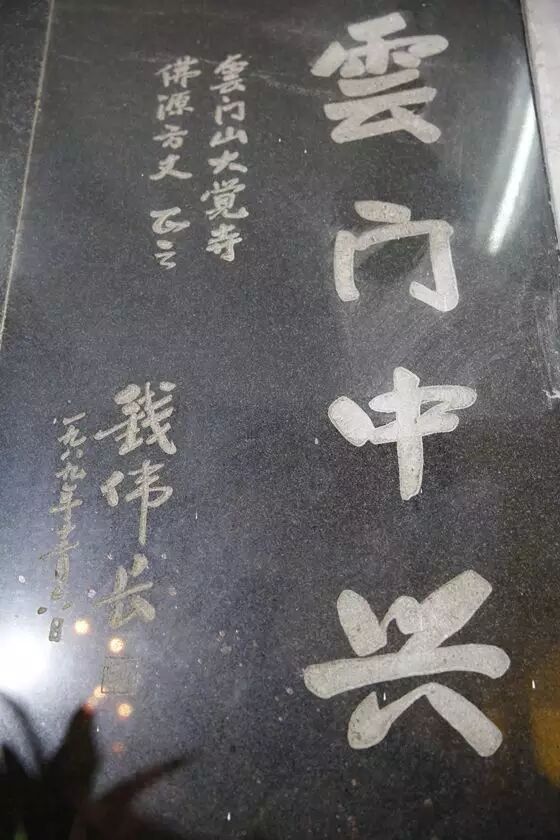 雲门中兴
雲门山大觉寺
佛源方丈 正之
錢伟长
一九八九年